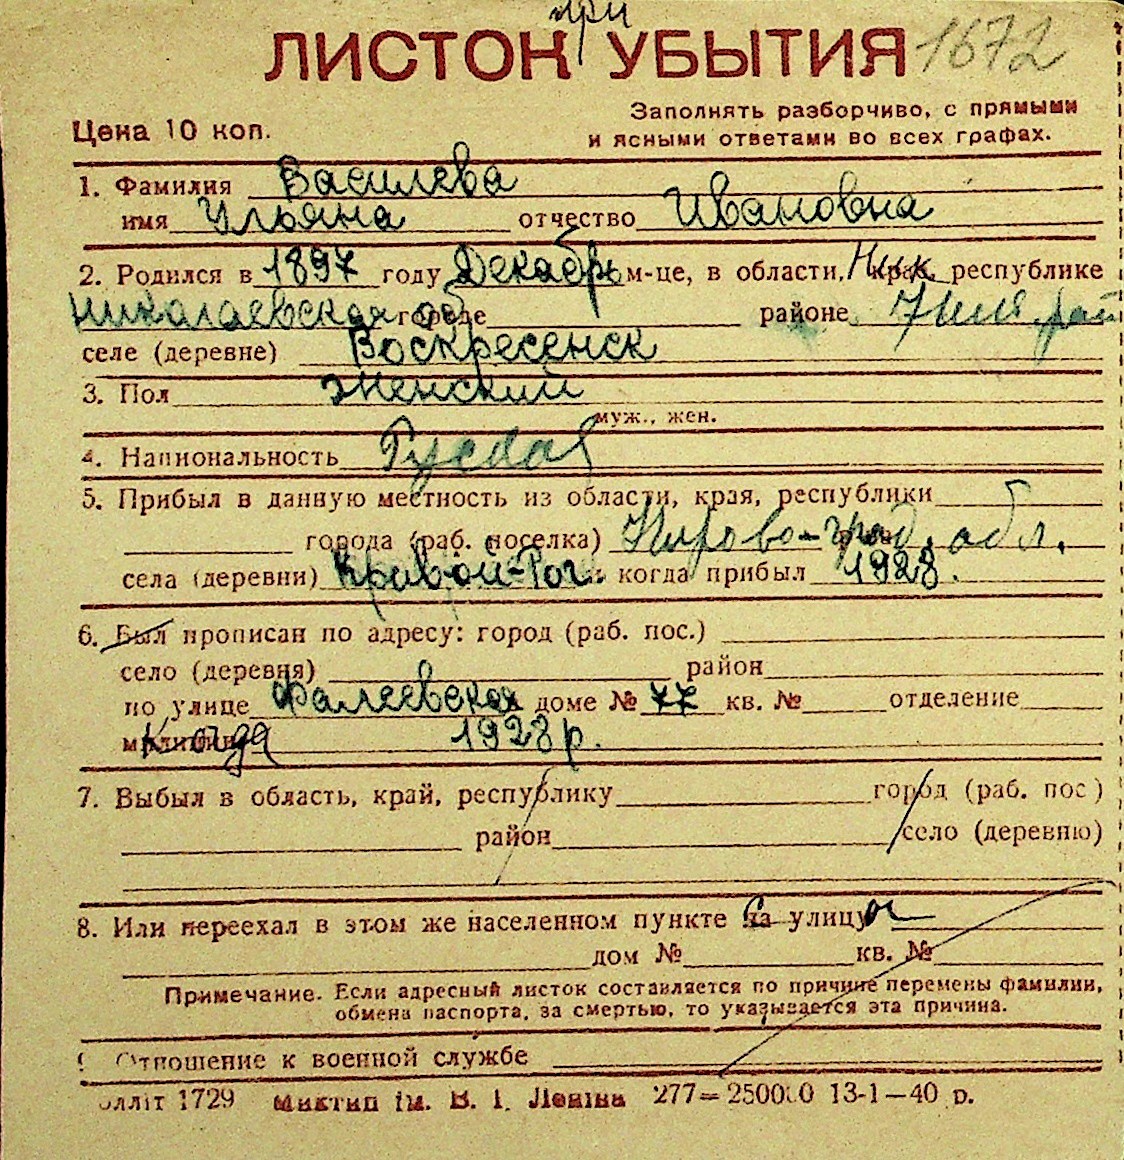 при
ЛИСТОК УБЫТИЯ 1672
Заполнять разборчиво, с прямыми
Цена 10 коп.
и ясными ответами во всех графах.
1. Фамилия Василева
имя Ульяна отчество Ивановна
2. Родился в 1897 году Декабрь м-це, в области, края, республике
Николаевская об городе районе
селе (деревне) Воскресенск
3. Пол женский
муж., жен.
4. Национальность Руская
5. Прибыл в данную местность из области, края, республики
города (раб. поселка) Кирово-град. обл.
села (деревни) Кривой-Рог когда прибыл 1928.
6. Был прописан по адресу: город (раб. пос.)
село (деревня) район
по улице Фалеевская доме № 77 кв. № отделение
милиции когда 1928 р.
7. Выбыл в область, край, республику город (раб. пос)
район село (деревню)
8. Или переехал в этом же населенном пункте на улицу
дом № кв. №
Примечание. Если адресный листок составляется по причине перемены фамилии,
обмена паспорта, за смертью, то указывается эта причина.
9 Отношение к военной службе
блліт 1729 Миктип ім. В. І. Леніна 277=250000 13-1—40 р.